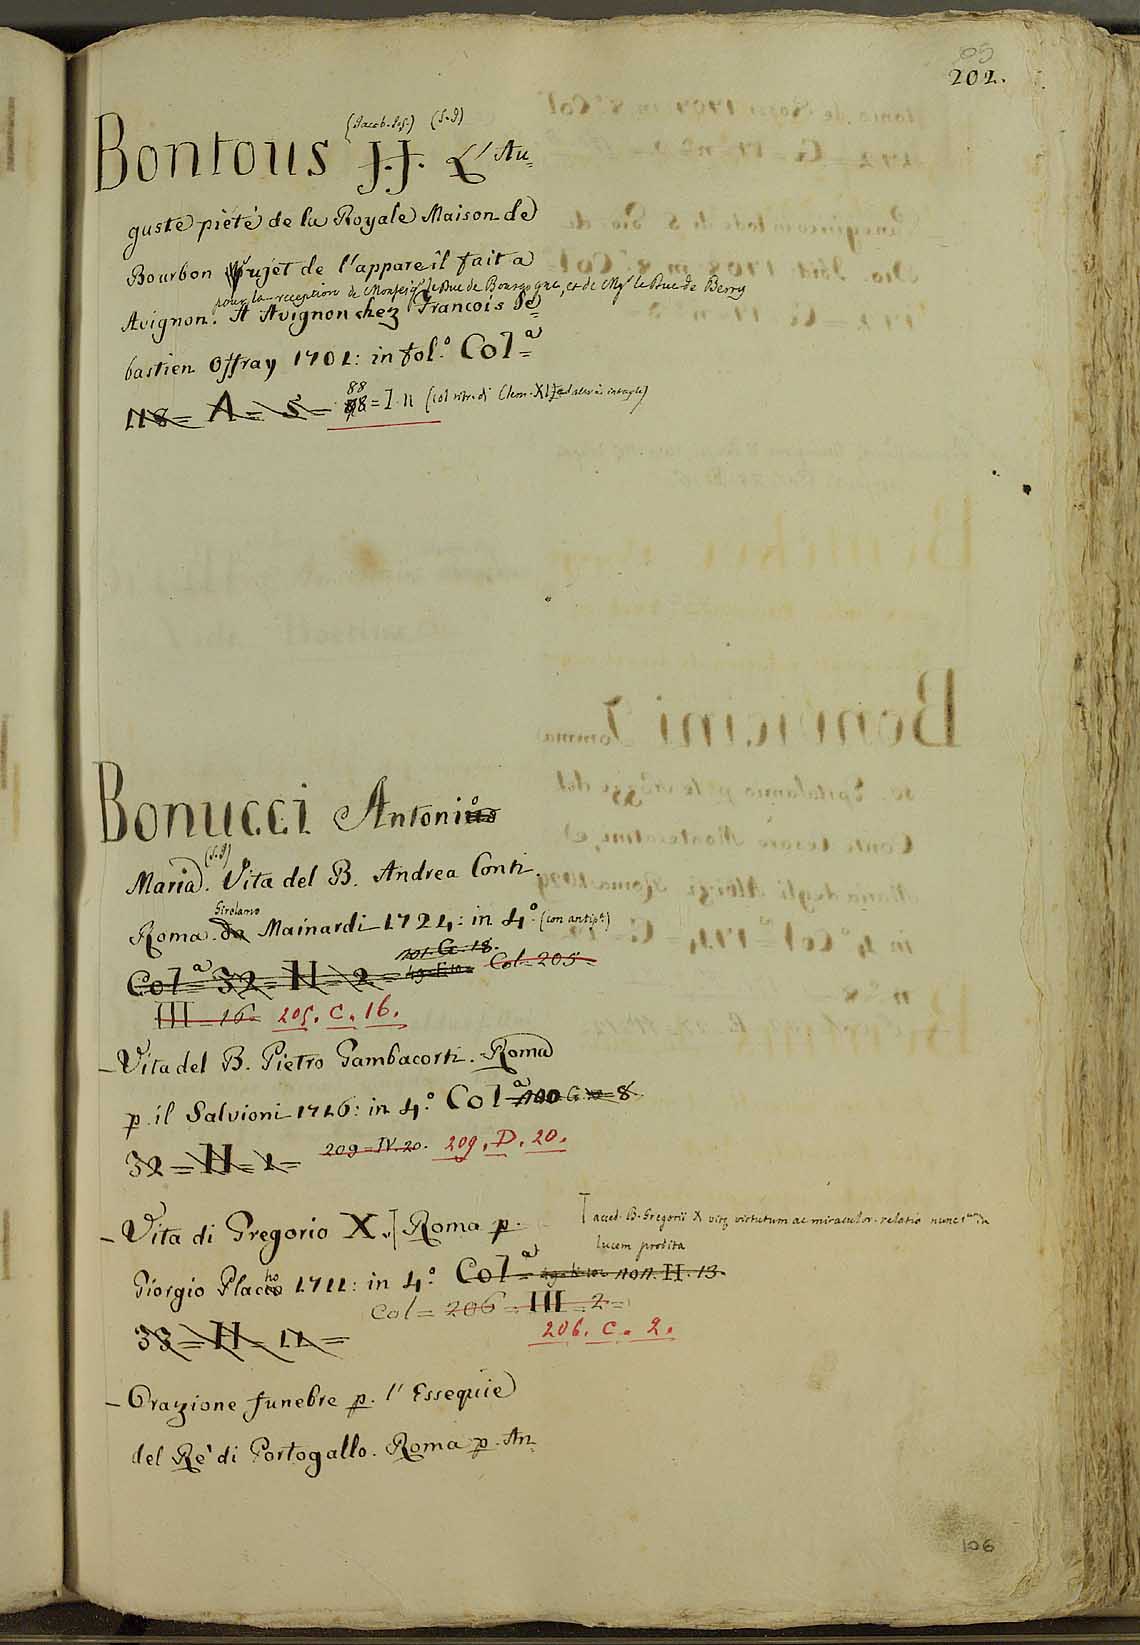 202.
(Jacob. Jos.) (S.J)
Bontous J.J. L'Au=
guste piété de la Royale Maison de
Bourbon sujet de l'appareil fait a
pour la reception de Monseigr le Duc de Bourgogne, et de Mgr le Duc de Berry
Avignon. A Avignon chez Francois Se=
bastien Offray 1701: in fol.º Colª=
118= A= 5= 88 = I. 11 (col ritr. di Clem. XI
Bonucci Antonio
Maria. (S.J) Vita del B. Andrea Conti.
Girolamo
Roma. da Mainardi 1724: in 4.º (con antip.)
101. G. 18.
Colª 32= H= 2= Col= 205=
III= 16. 205. C. 16.
– Vita del B. Pietro Gambacorti. Roma
p. il Salvioni 1716: in 4.º Colª G 8
32= H= 1= 209= IV. 20. 209. D. 20.
– Vita di Gregorio X.] Roma p.
[acced. B. Gregorii X virtutum ac miraculor. relatio nunc in
lucem prodita
Giorgio Placho 1711: in 4.º Colª= H. 13.
Col= 206= III= 2=
33= H= 11= 206. C. 2.
– Orazione funebre p. l'Essequie
del Re di Portogallo. Roma p. An=
106